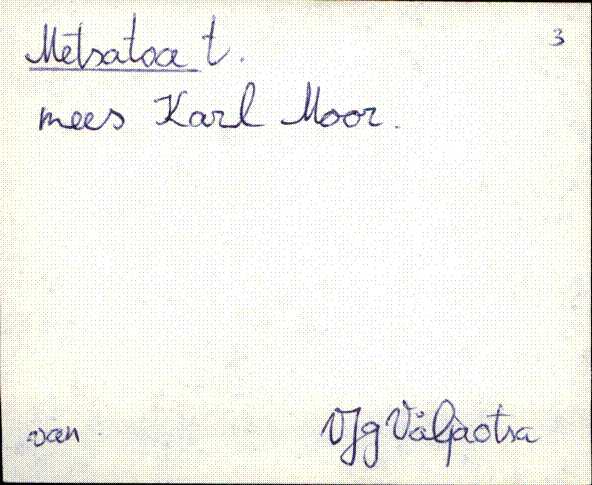 3
Metsatoa t.
mees Karl Moor.
van VJg Väljaotsa